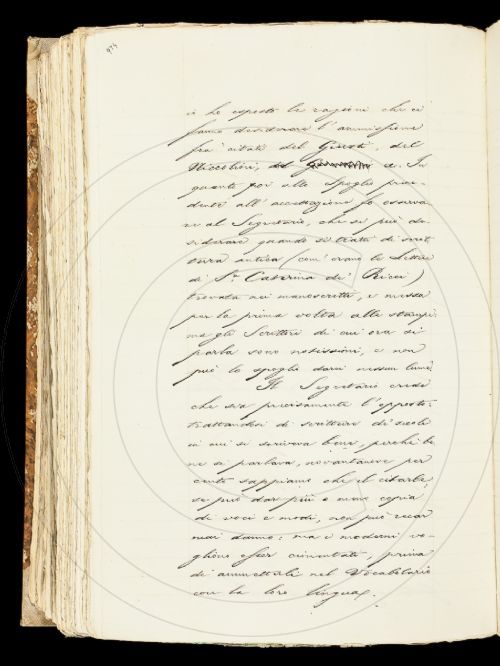 974
e ho esposto le ragioni che ci
fanno desiderare l'ammissione
fra' citati del Giusti, del
Niccolini, ec. In
quanto poi allo Spoglio prece-
dente all'accettazione fo osserva-
re al Segretario, che si può de-
siderare quando si tratti di scrit-
tura antica (com'erano le Lettere
di Sta. Caterina de' Ricci)
trovata nei manoscritti, e messa
per la prima volta alle stampe:
ma gli Scrittori di cui ora si
parla sono notissimi, e non
può lo spoglio darci nessun lume.
Il Segretario crede
che sia precisamente l'opposto:
trattandosi di scritture di secoli
in cui si scriveva bene, perchè be-
ne si parlava, novantanove per
cento sappiamo che il citarle,
se può dar più o meno copia
di voci e modi, non può recar
mai danno: ma i moderni vo-
gliono esser cimentati, prima
di ammetterli nel Vocabolario
con la loro lingua.